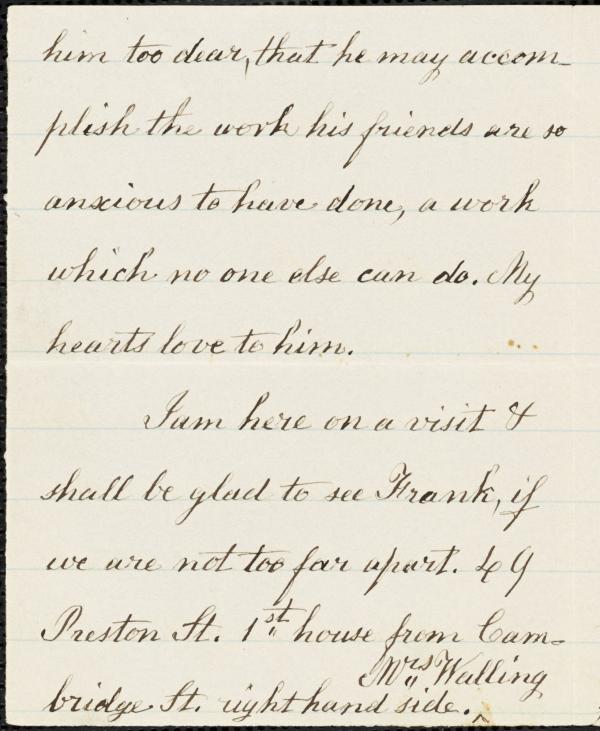 him too dear, that he may accom-
plish the work his friends are so
anxious to have done, a work
which no one else can do. My
hearts love to him.
I am here on a visit &
shall be glad to see Frank, if
we are not too far apart. 49
Preston St. 1st house from Cam-
Mrs Walling
bridge St. right hand side. ^